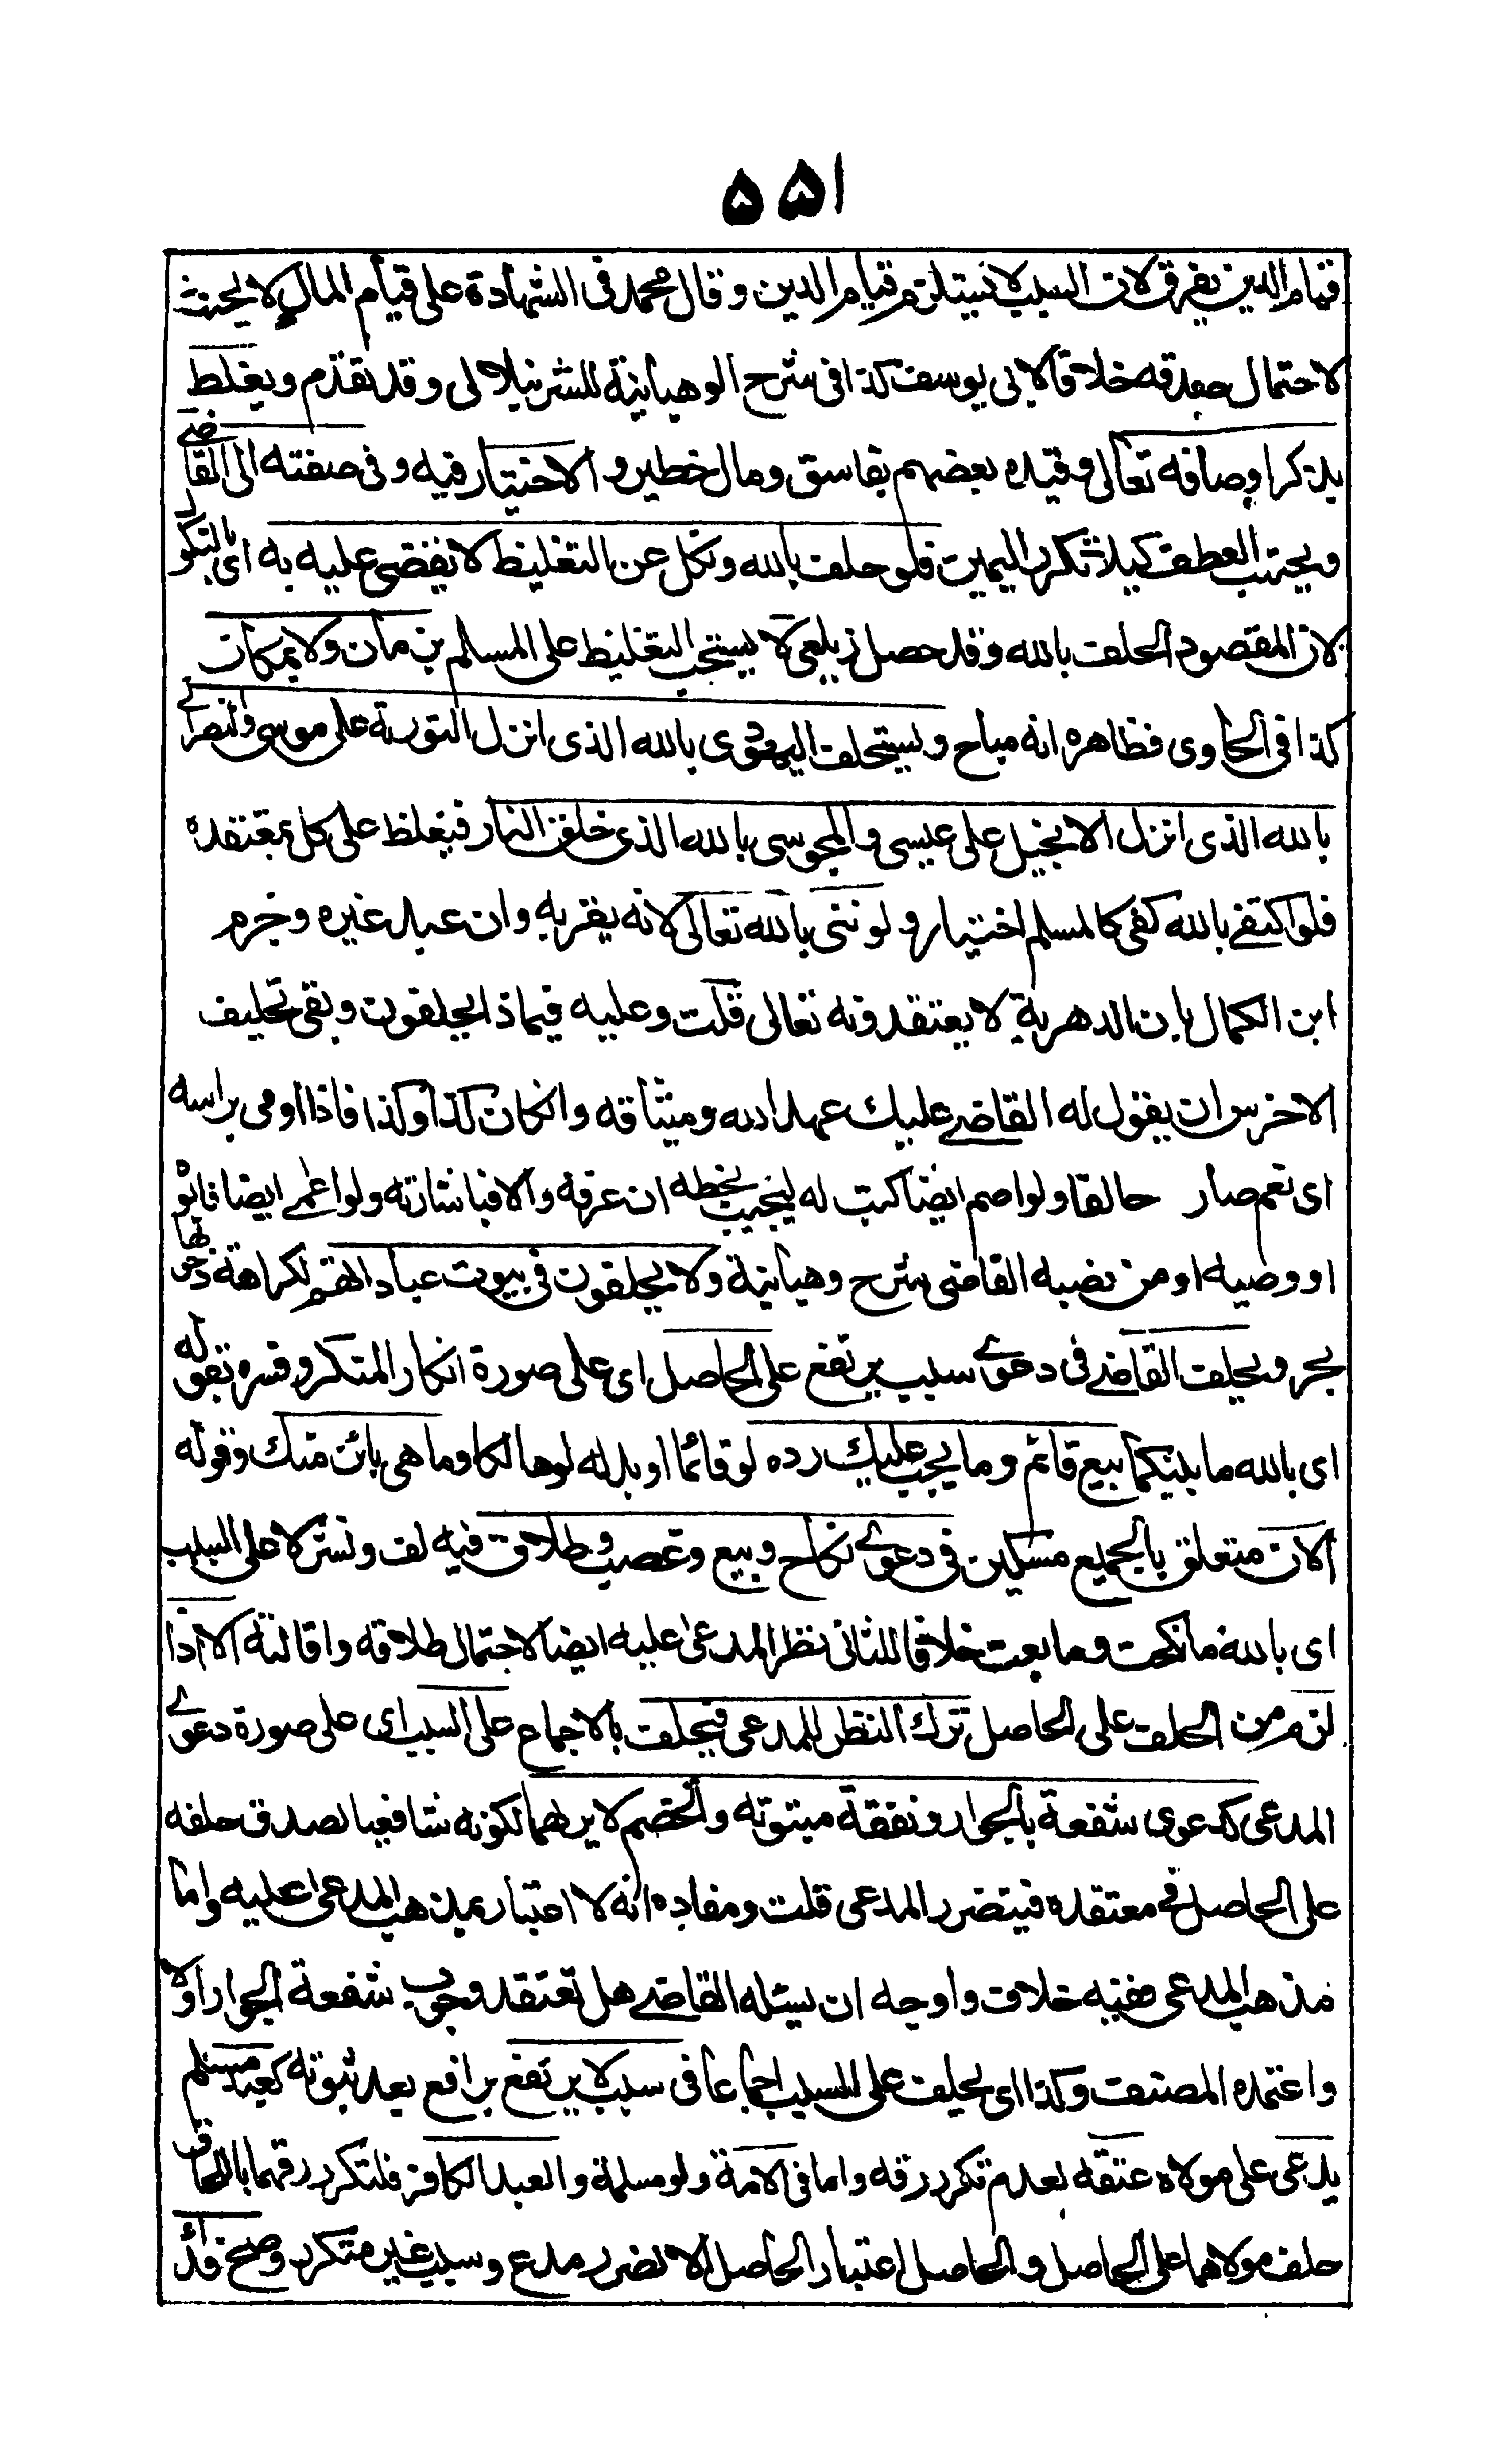 ۵۵۱
قيام الدين يفرق لان السبب لا يستلزم قيام الدين وقال محمد فى الشهادة على قيام المال لا يحنث
لاحتمال صدقه خلافا لابى يوسف كذا فى شرح الوهبانية للشرنبلالى وقد تقدم ويغلظ
بذكر اوصافه تعالى وقيده بعضهم بفاسق ومال خطير والاختيار فيه وفى صفته الى القاضے
ويجتنب العطف كيلا تتكرر اليمين فلو حلف بالله ونكل عن التغليظ لا يقضى عليه به اى بالنكول
لان المقصود الحلف بالله وقد حصل زيلعى لا يستحب التغليظ على المسلم بزمان ولا بمكان
كذا فى الحاوى فظاهره انه مباح ويستحلف اليهودى بالله الذى انزل التورىة على موسى والنصرانے
بالله الذى انزل الانجيل على عيسى والمجوسى بالله الذى خلق النار فيغلظ على كل بمعتقده
فلو اكتفے بالله كفى كالمسلم اختيار ولوثنى بالله تعالى لانه يقر به وان عبد غيره وجزم
ابن الكمال بان الدهرية لا يعتقدونه تعالى قلت وعليه فيماذا يحلفون وبقى تحليف
الاخرس ان يقول له القاضے عليك عهد الله وميثاقه وانكان كذا وكذا فاذا اومى براسه
اى نعم صار حالفا ولو اصم ايضا كتب له ليجيب بخطه ان عرفه والا فباشارته ولو اعمے ايضا فابوه
او وصيه او من نصبه القاضى شرح وهبانية ولا يحلفون فى بيوت عباداتهم لكراهة دخولها
بحر ويحلف القاضے فى دعوے سبب يرتفع على الحاصل اى على صورة انكار المنكر وفسره بقوله
اى بالله ما بينكما بيع قائم وما يجب عليك رده لو قائما او بدله لو هالكا وما هى بائن منك وقوله
الان متعلق بالجميع مسكين فى دعوے نكاح وبيع وغصب وطلاق فيه لف ونشر لا على السبب
اى بالله ما نكحت وما بعت خلافا للثانى نظرا للمدعى عليه ايضا لاحتمال طلاقه واقالته الا اذا
لزم من الحلف على الحاصل ترك النظر للمدعى فيحلف بالاجماع على السبب اى على صورة دعوے
المدعى كدعوى شفعة بالجوار ونفقة مبتوتة والخصم لا يراهما لكونه شافعيا لصدق حلفه
على الحاصل فے معتقده فيتضرر المدعى قلت ومفاده انه لا اعتبار بمذهب المدعى عليه واما
مذهب المدعى ففيه خلاف واوجه ان يسئله القاضے هل تعتقد وجوب شفعة الجوار اولا
واعتمده المصنف وكذا اى يحلف على السبب اجماعا فى سبب لا يرتفع برافع بعد ثبوته كعبد مسلم
يدعى على مولاه عتقه لعدم تكرر رقه واما فى الامة ولو مسلمة والعبد الكافر فلتكرر رقهما باللحاق
حلف مولاهما على الحاصل والحاصل اعتبار الحاصل الا لضرر مدع وسبب غير متكرر وصح فداء